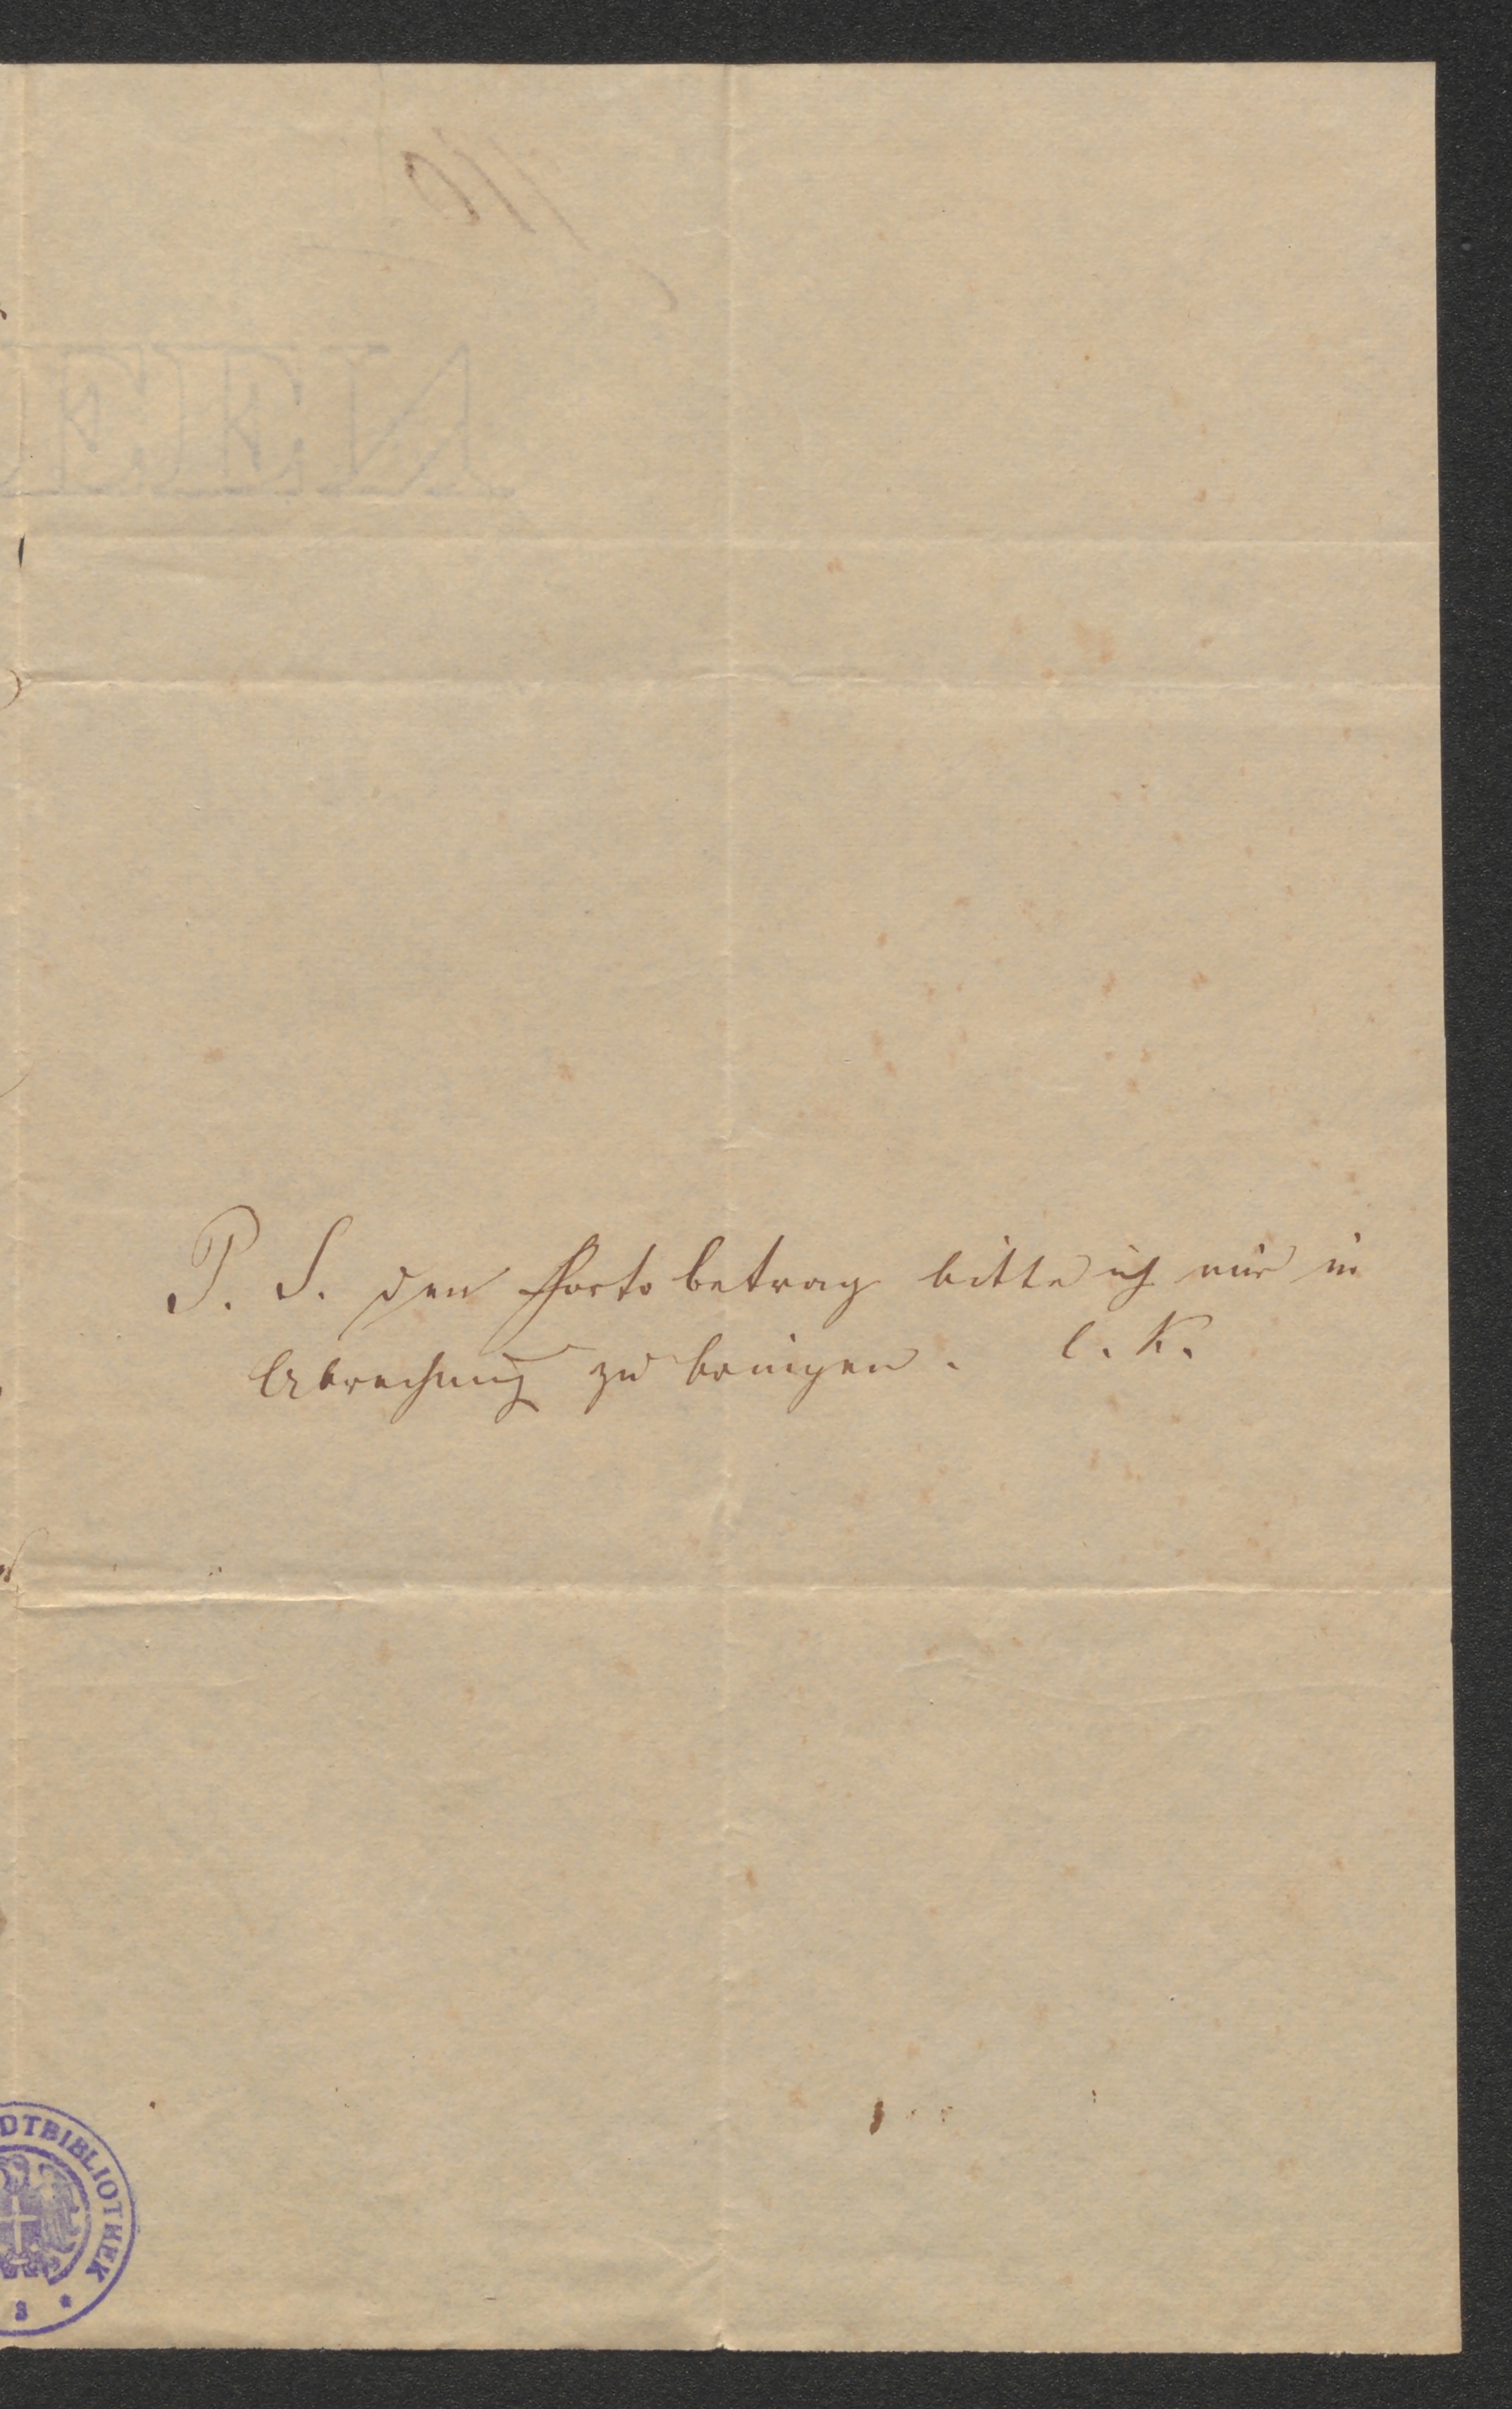 P. S. den Portobetrag bitte ich mir in
Abrechnung zu bringen. C. K.
DTBIBLIOTHEK